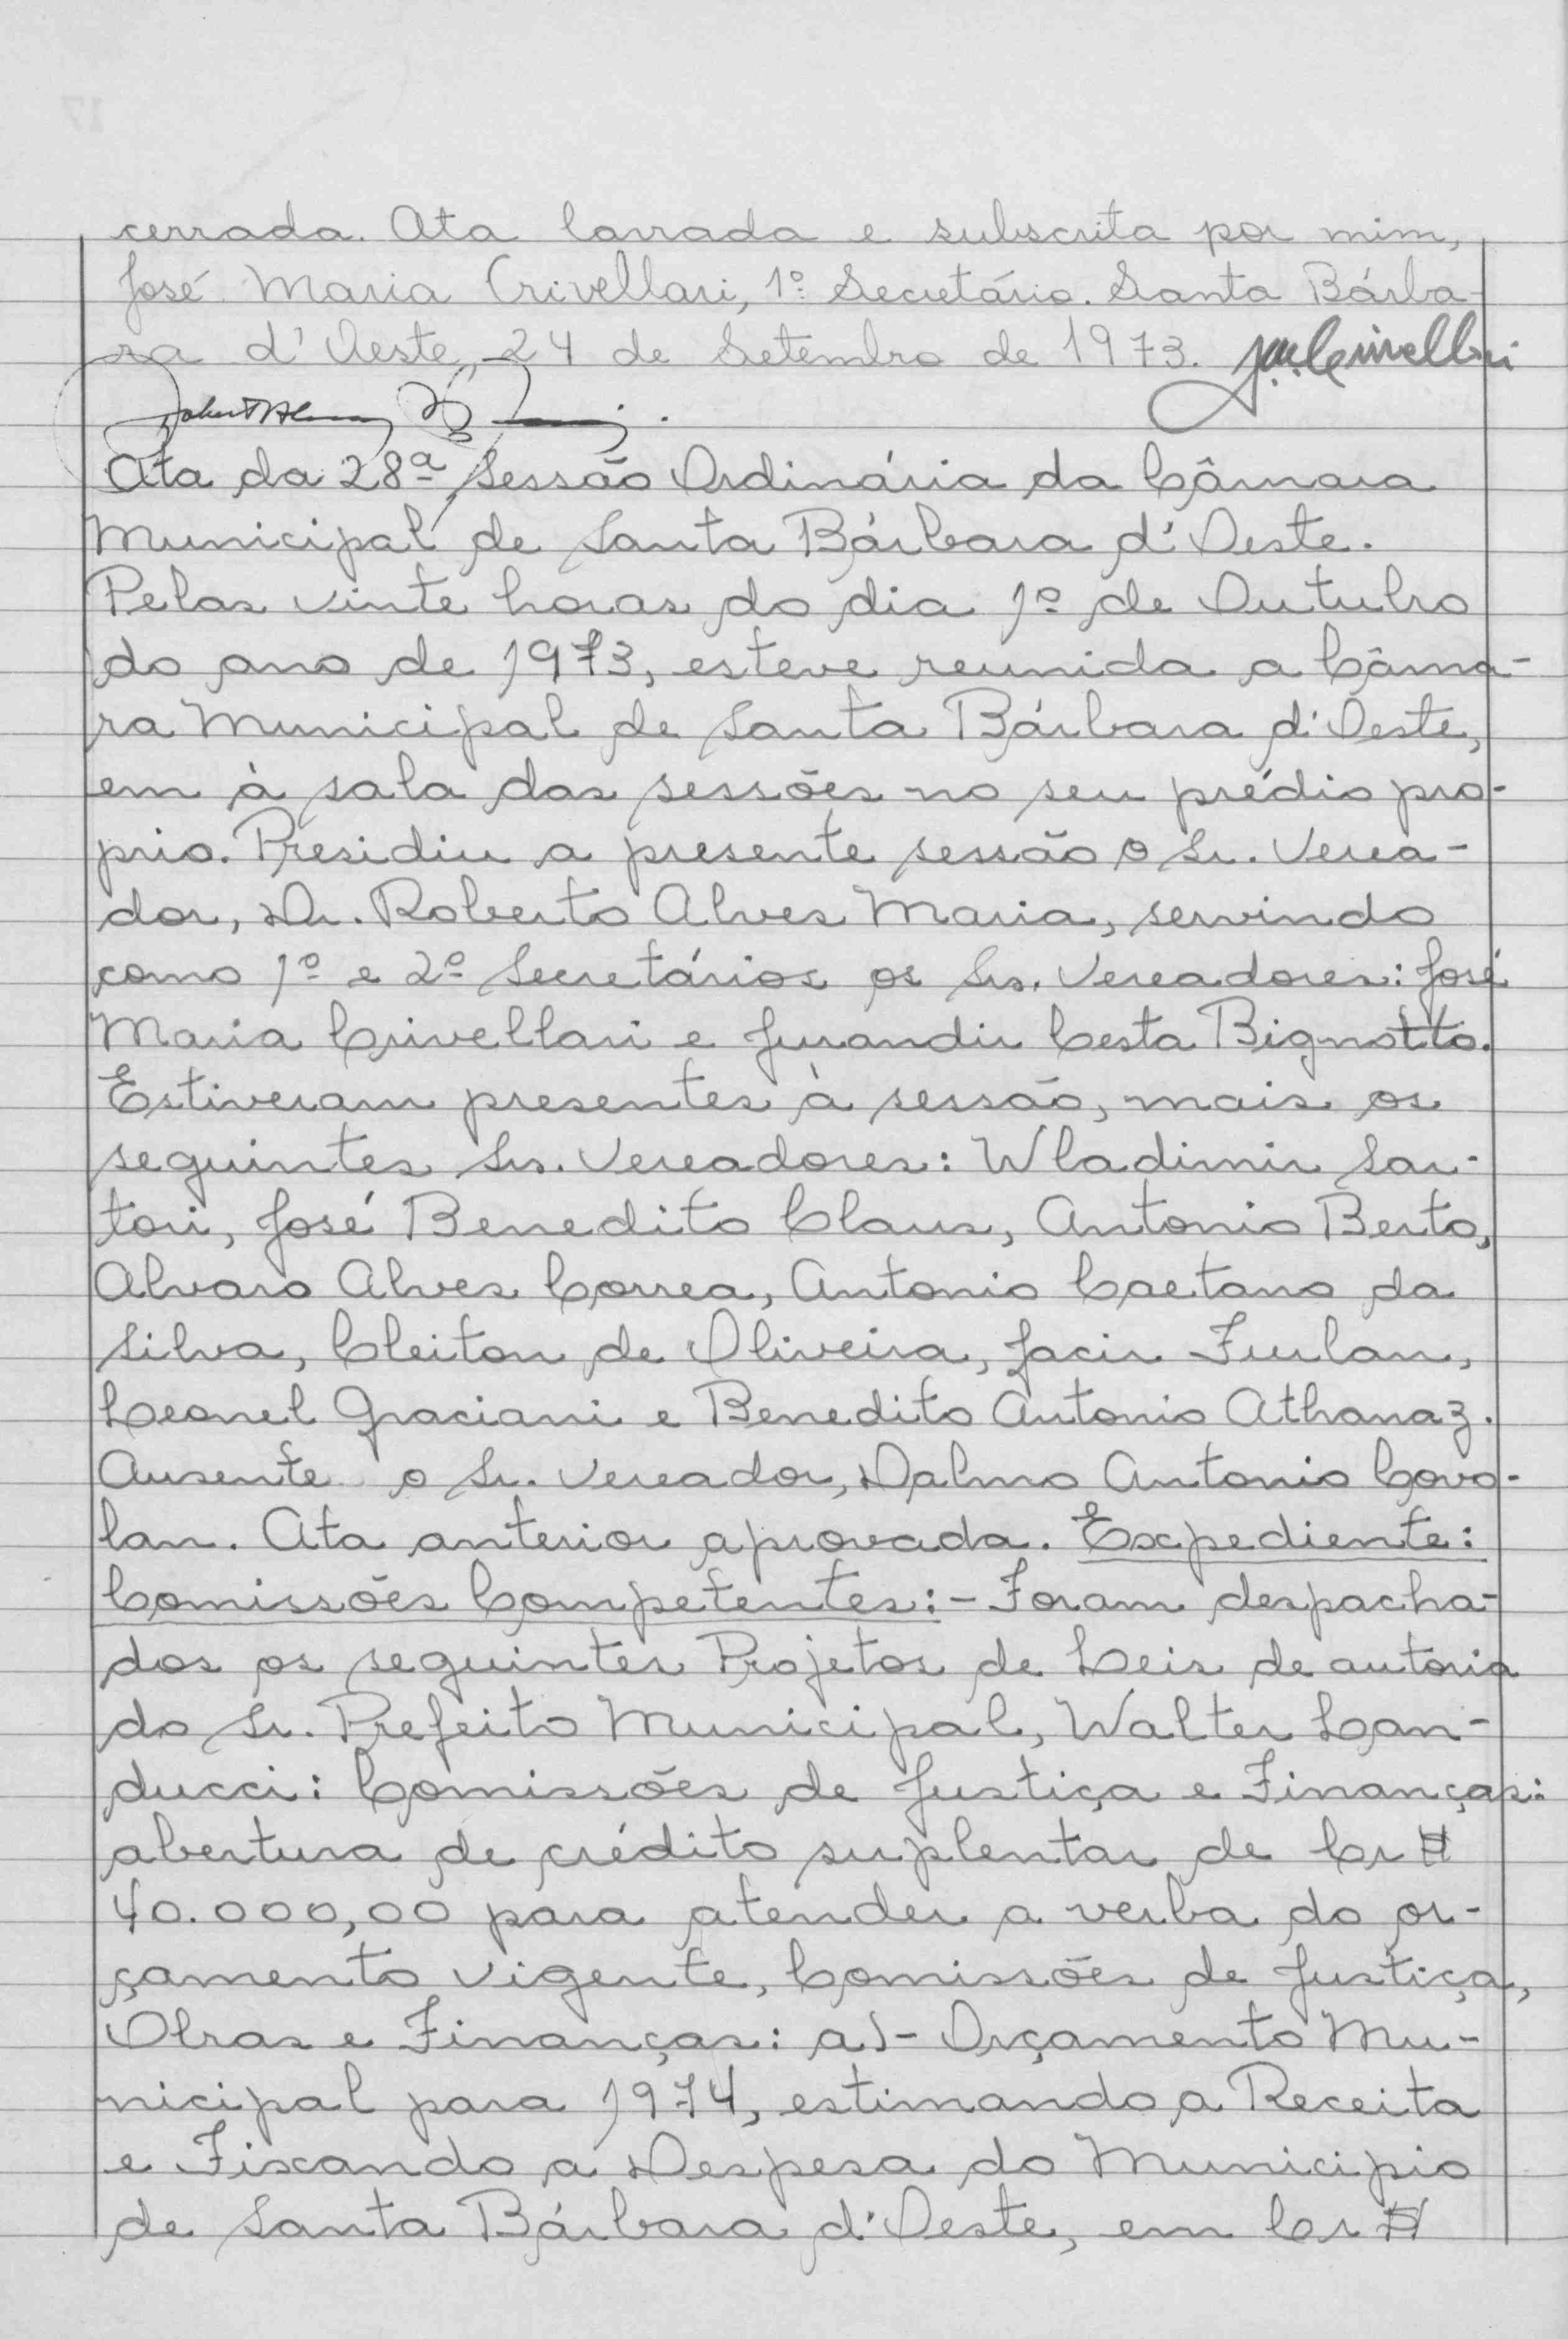 cerrada. Ata lavrada e subscrita por mim,
José Maria Crivellari, 1º Secretário. Santa Bárba-
ra d'Oeste, 24 de Setembro de 1973. J.M. Crivellari
Ata da 28ª Sessão Ordinária da Câmara
Municipal de Santa Bárbara d'Oeste.
Pelas vinte horas do dia 1º de Outubro
do ano de 1973, esteve reunida a Câma-
ra Municipal de Santa Bárbara d'Oeste,
em à sala das sessões no seu prédio pro-
prio. Presidiu a presente sessão o Sr. Verea-
dor, Dr. Roberto Alves Maria, servindo
como 1º e 2º Secretários os Srs. Vereadores: José
Maria Crivellari e Jurandir Cesta Bignotto.
Estiveram presentes à sessão, mais os
seguintes Srs. Vereadores: Wladimir Sar-
tori, José Benedito Claus, Antonio Berto,
Alvaro Alves Correa, Antonio Caetano da
Silva, Cleiton de Oliveira, Jacir Furlan,
Leonel Graciani e Benedito Antonio Athanaz.
Ausente o Sr. Vereador, Dalmo Antonio Covo-
lan. Ata anterior aprovada. Expediente:
Comissões Competentes:- Foram despacha-
dos os seguintes Projetos de Leis de autoria
do Sr. Prefeito Municipal, Walter Lan-
ducci: Comissões de Justiça e Finanças:
abertura de crédito suplentar de Cr$
40.000,00 para atender a verba do or-
çamento vigente, Comissões de Justiça,
Obras e Finanças: a)- Orçamento Mu-
nicipal para 1974, estimando a Receita
e Fixando a Despesa do Municipio
de Santa Bárbara d'Oeste, em Cr$